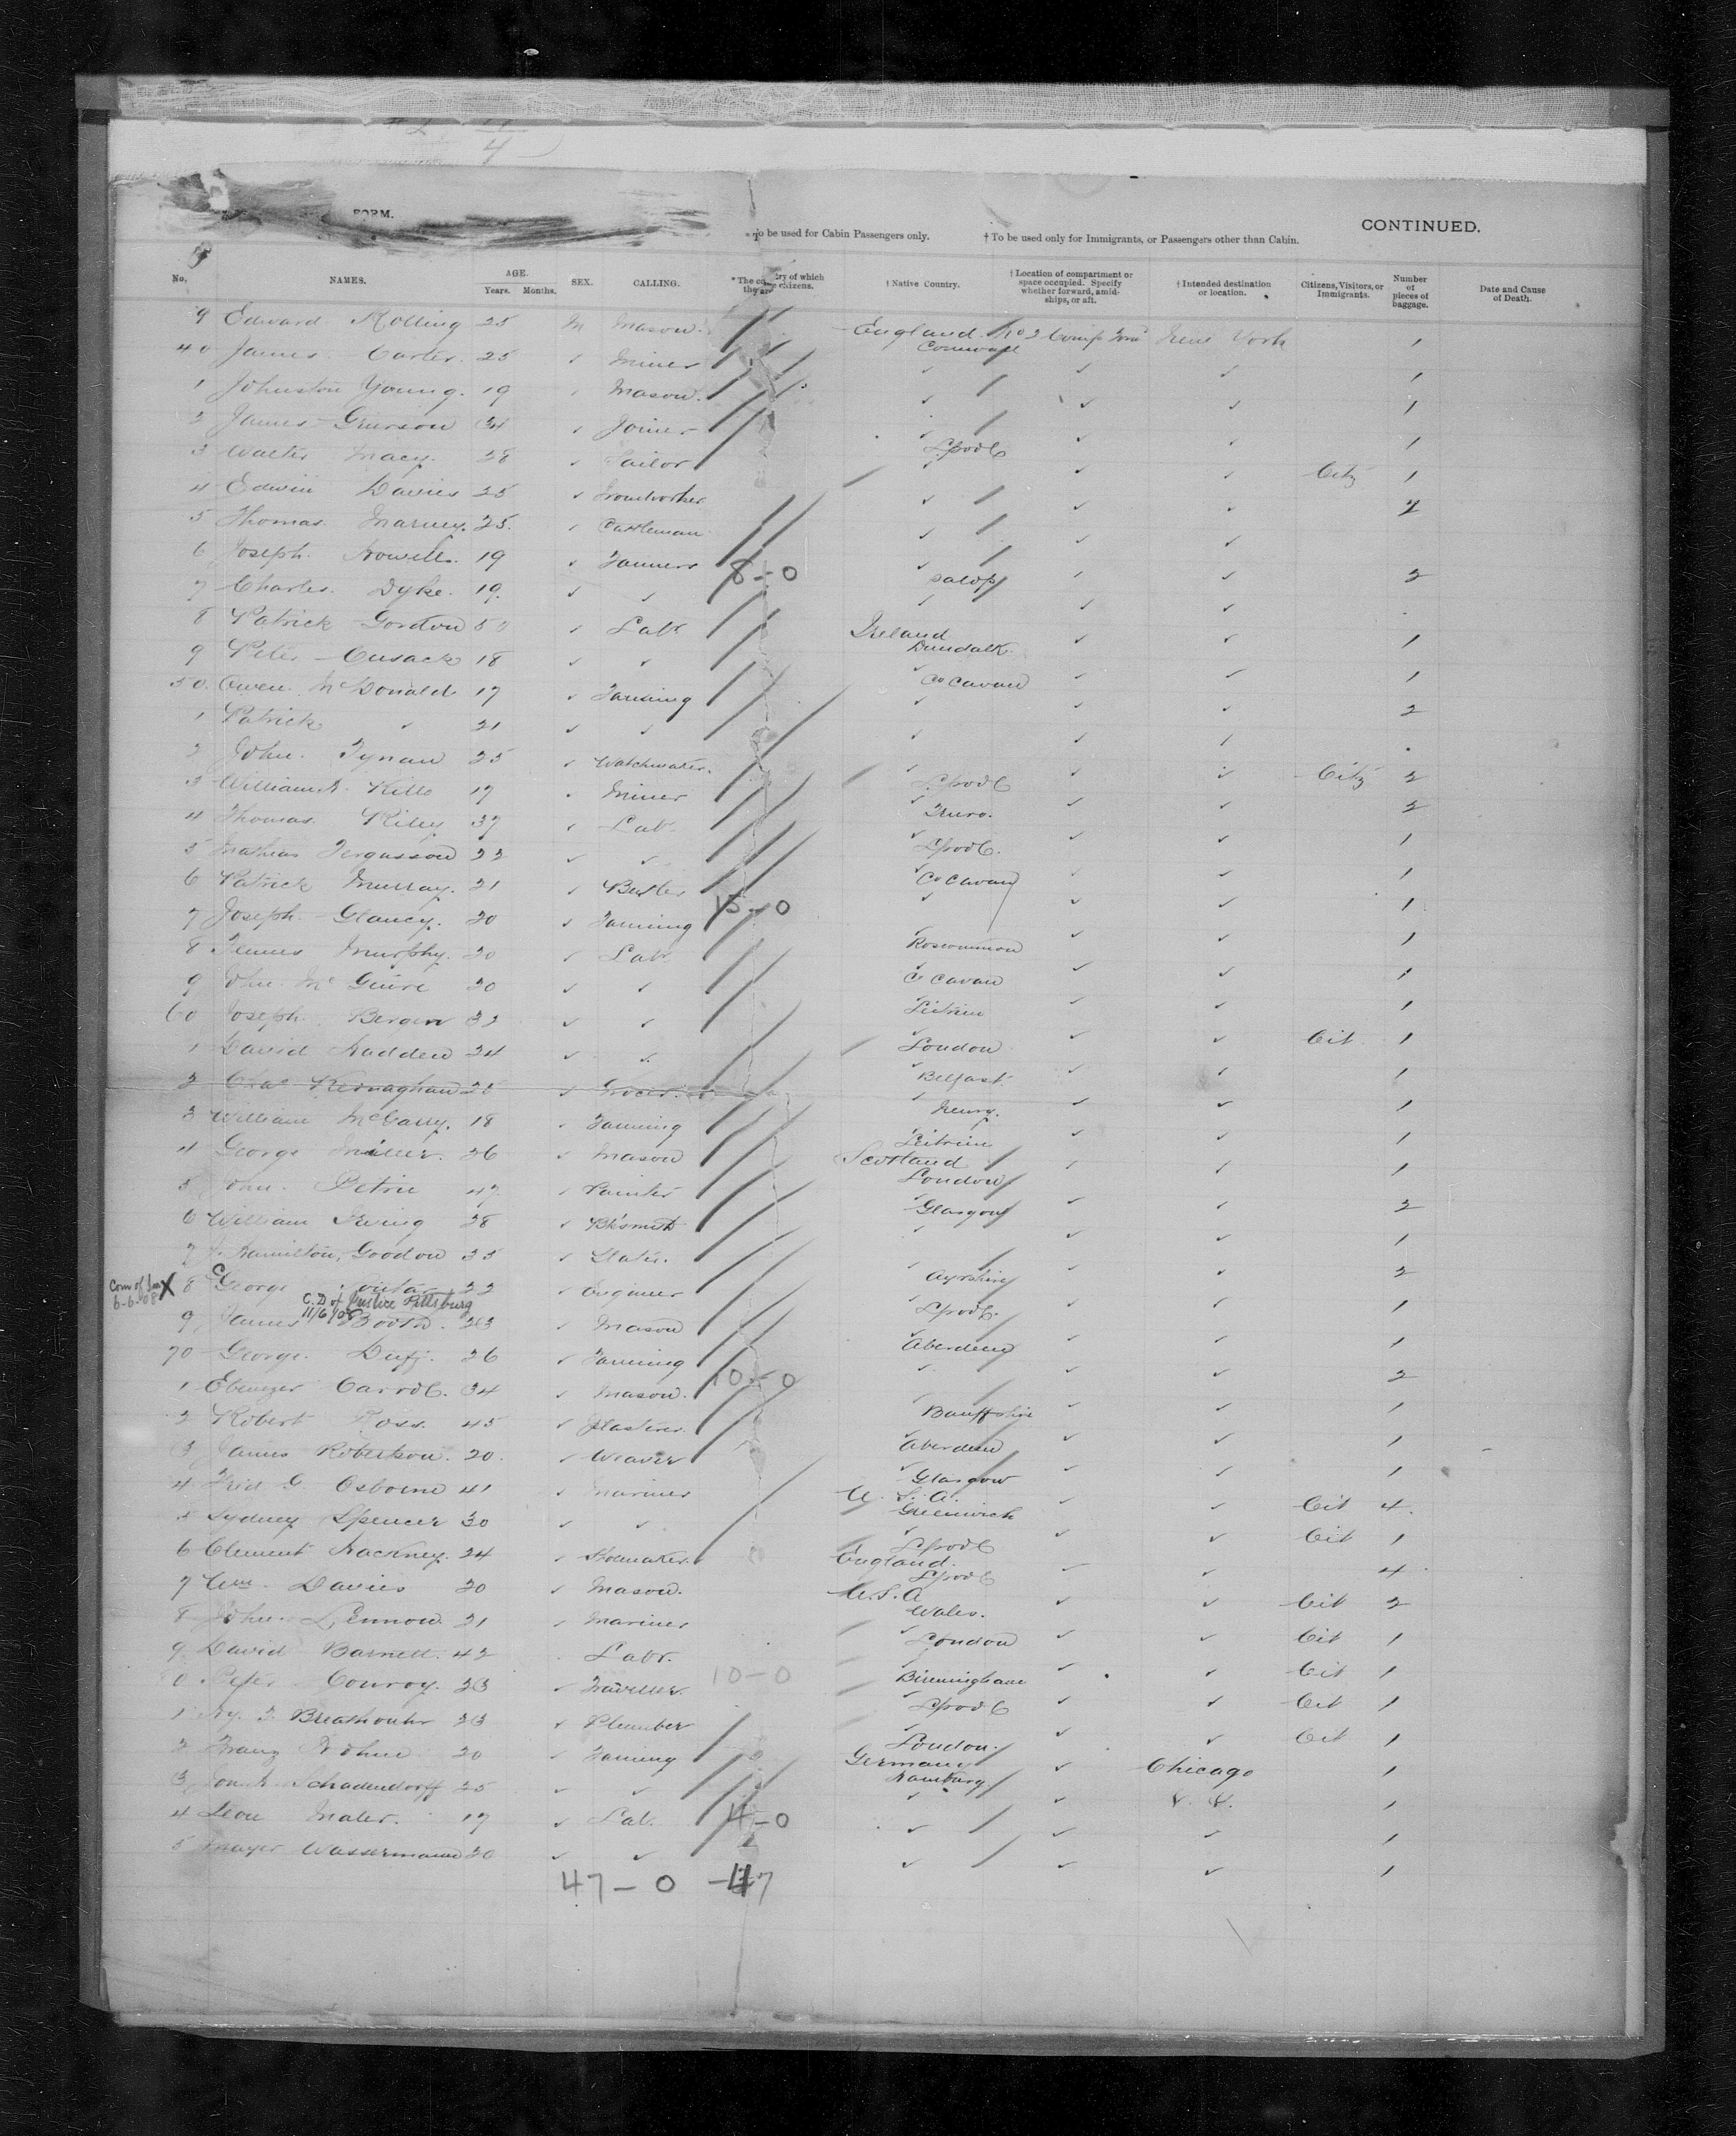 4
FORM.
* To be used for Cabin Passengers only. † To be used only for Immigrants, or Passengers other than Cabin. CONTINUED.
No. NAMES. AGE. Years. Months. SEX. CALLING. * The co try of which they are citizens. † Native Country. † Location of compartment or space occupied. Specify whether forward, amidships, or aft. † Intended destination or location. Citizens, Visitors, or Immigrants. Number of pieces of baggage. Date and Cause of Death.
9 Edward 25 M Mason England No 2 Comp New York 1
Cornwall
40 James Carter 25 ✓ Miner ✓ ✓ ✓ 1
1 Johnston Young. 19 Mason. ✓ ✓ ✓ 1
2 James Grierson 34 ✓ Joiner ✓ ✓ ✓ 1
L'pool
3 Walter Macy. 28 ✓ Sailor ✓ ✓ ✓ Citz 1
4 Edwin Davies 25 ✓ Ironworker ✓ ✓ ✓ 2
5 Thomas 25. Cattleman ✓ ✓ ✓
6 Joseph 19 ✓ Farmers 8-0 ✓ ✓ ✓ 2
Salop
7 Charles Dyke. 19. ✓ ✓ ✓ ✓ ✓
8 Patrick Gordon ✓ Labr Ireland ✓ ✓ 1
Dundalk
9 Peter Cusack 18 ✓ ✓ ✓ ✓ ✓ 1
Co Cavan
50. Owen McDonald 17 ✓ Farming ✓ ✓ ✓ 2
1 Patrick ✓ 21 ✓ ✓ ✓ ✓ ✓
2 John. Tynan 25 ✓ Watchmaker. ✓ ✓ ✓ Citz 2
L'pool
3 William 17 Miner ✓ ✓ ✓ 2
Truro.
4 Thomas Riley 37 ✓ Labr ✓ ✓ ✓ 1
L'pool.
5 Fergusson 22 ✓ ✓ ✓ ✓ ✓ 1
Co Cavan
6 Patrick Murray. 21 ✓ Butler 15-0 ✓ ✓ ✓ 1
7 Joseph Glancy. 20 ✓ Farming ✓ ✓ ✓ 1
Roscommon
8 Murphy. 20 ✓ Labr ✓ ✓ ✓ 1
Co Cavan
9 John McGuire 20 ✓ ✓ ✓ ✓ ✓ 1
Leitrim
60 Joseph Bergen 32 ✓ ✓ ✓ ✓ ✓ Cit 1
London
1 David Hadden 24 ✓ ✓ ✓ ✓ ✓ 1
Belfast
2 Chas Kernaghan 25 ✓ Grocer ✓ ✓ ✓ 1
Newry.
3 William McGarry. 18 ✓ Farming ✓ ✓ ✓ 1
Leitrim
4 George Miller. 26 ✓ Mason Scotland ✓ ✓ 1
London
5 John Petrie 47 ✓ Painter ✓ ✓ ✓ 2
Glasgow
6 William Irving 28 ✓ Bk'smith ✓ ✓ ✓ 1
7 J. Hamilton Goodon 35 ✓ Slater. ✓ ✓ ✓ 2
Ayrshire
Com of Im X 6-6-08
8 George 22 ✓ Engineer ✓ ✓ ✓ 1
L'pool.
C.D of Justice Pittsburg 11/6/08
9 James Booth. 23 ✓ Mason ✓ ✓ ✓ 1
Aberdeen
70 George Duff. 26 ✓ Farming 10-0 ✓ ✓ ✓ 2
1 Ebenezer Carroll. 34 ✓ Mason. ✓ ✓ ✓ 1
Banffshire
2 Robert Ross. 45 ✓ Plasterer ✓ ✓ ✓ 1
Aberdeen
3 James Robertson. 20. ✓ Weaver ✓ ✓ ✓ 1
Glasgow
4 Fred G. Osborne 41 ✓ Mariner U.S.A. ✓ ✓ Cit 4
Greenwich
5 Sydney Spencer 30 ✓ ✓ ✓ ✓ ✓ Cit 1
L'pool
6 Clement Hackney. 24 ✓ Shoemaker. England. ✓ ✓ 4
L'pool
7 Wm. Davies 20 ✓ Mason. U.S.A ✓ ✓ Cit 2
Wales.
8 John Lennon. 21 ✓ Mariner ✓ ✓ ✓ Cit 1
London
9 David Barnett. 42 Labr. ✓ ✓ Cit 1
Birmingham
0 Peter Conroy. 23 ✓ Traveller. 10-0 ✓ ✓ ✓ Cit 1
L'pool
1 Hy. T. 23 ✓ Plumber ✓ ✓ ✓ Cit 1
London.
2 Franz 20 ✓ Farming Germany ✓ Chicago 1
Hamburg
3 Schadendorff 25 ✓ ✓ ✓ ✓ 1
4 Leon Maler. 17 ✓ Lab. 4-0 ✓ ✓ ✓ 1
5 Mayer Wassermann 20 ✓ ✓ ✓ ✓ ✓ 1
47-0-47